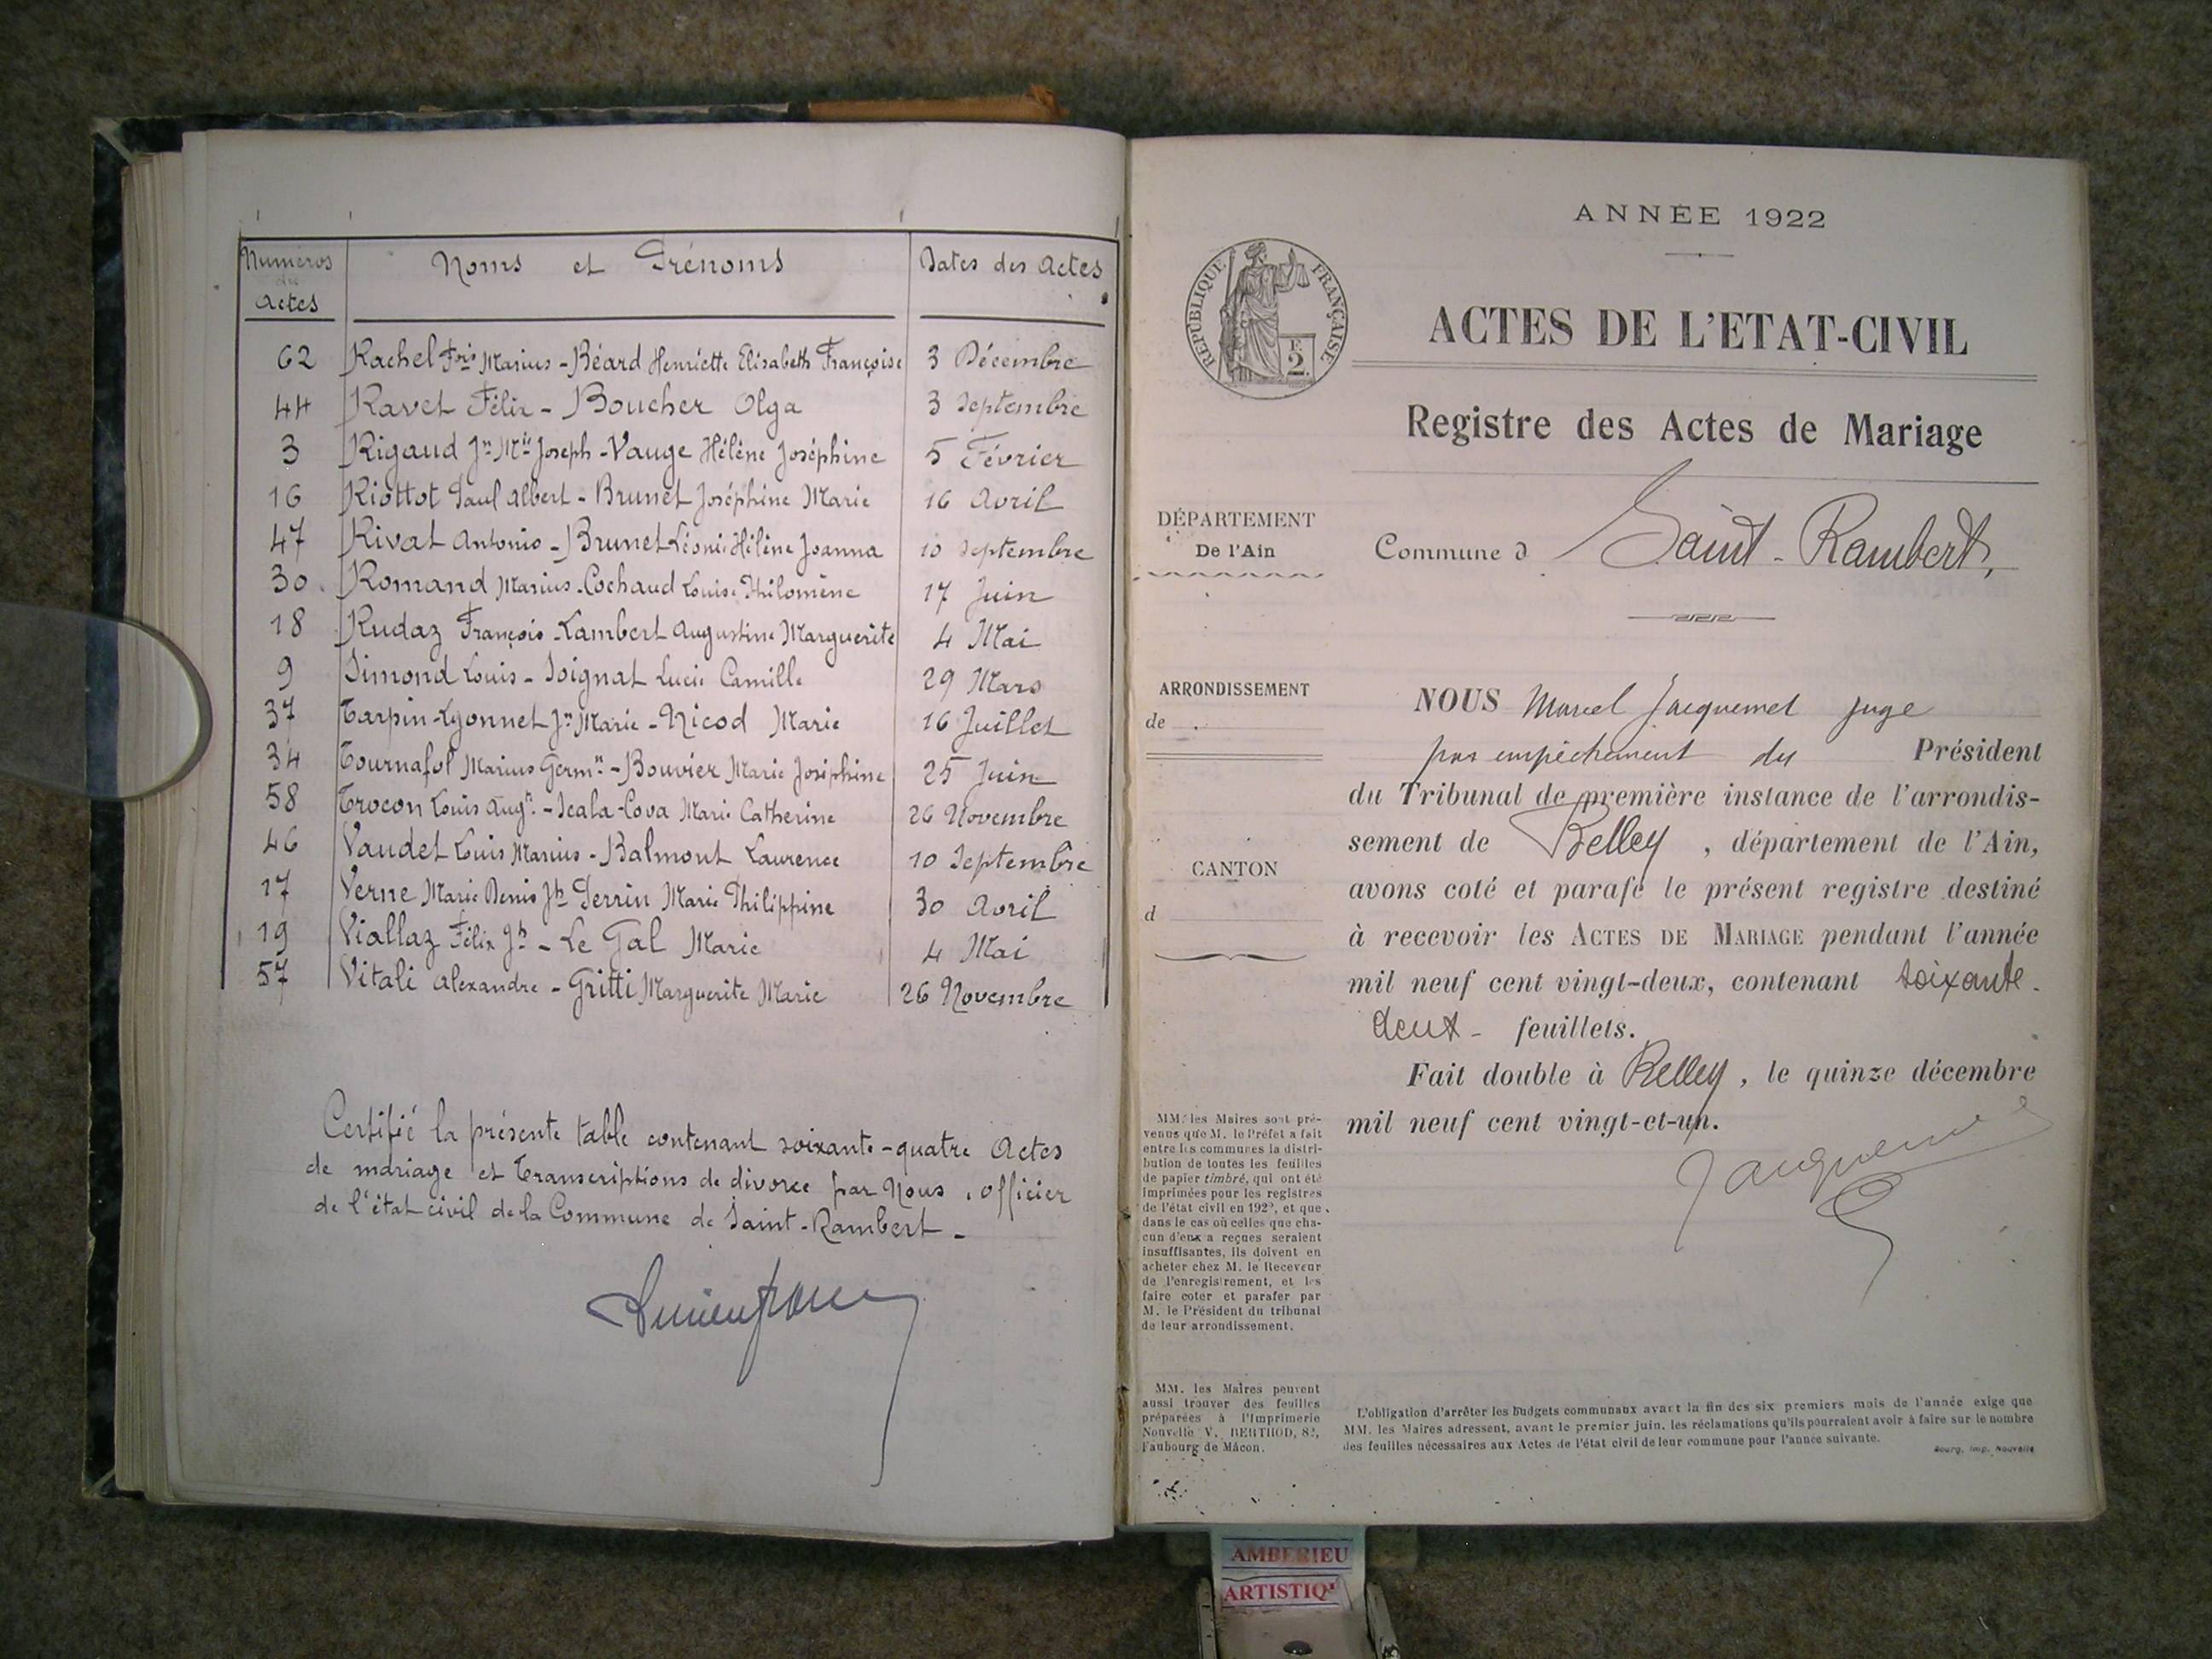 Numéros des Actes | Noms et Prénoms | Dates des Actes
62 Rachel Fois Marius - Béard Henriette Elisabeth Françoise 3 Décembre
44 Ravet Félix - Boucher Olga 3 Septembre
3 Rigaud Jn Mie Joseph - Vauge Hélène Joséphine 5 Février
16 Riottot Paul Albert - Brunet Joséphine Marie 16 Avril
47 Rivat Antonio - Brunet Léonie Hélène Joanna 10 Septembre
30 Romand Marius - Cochaud Louise Philomène 17 Juin
18 Rudaz François - Lambert Augustine Marguerite 4 Mai
9 Simond Louis - Soignat Lucie Camille 29 Mars
37 Tarpin-Lyonnet Jn Marie - Nicod Marie 16 Juillet
34 Tournafol Marius Germn - Bouvier Marie Joséphine 25 Juin
58 Trocon Louis Augn - Scala-Cova Marie Catherine 26 Novembre
46 Vaudet Louis Marius - Balmont Laurence 10 Septembre
17 Verne Marie Denis Jh Perrin Marie Philippine 30 Avril
19 Viallaz Félix Jh - Le Gal Marie 4 Mai
57 Vitali Alexandre - Gritti Marguerite Marie 26 Novembre
Certifié la présente table contenant soixante-quatre Actes
de mariage et Transcriptions de divorce par Nous, officier
de l'état civil de la Commune de Saint-Rambert -
ANNÉE 1922
RÉPUBLIQUE FRANÇAISE
F.
2
ACTES DE L'ETAT-CIVIL
Registre des Actes de Mariage
DÉPARTEMENT
De l'Ain
Commune d Saint-Rambert,
ARRONDISSEMENT
de
CANTON
d
NOUS Marcel Jacquemet juge
par empêchement du Président
du Tribunal de première instance de l'arrondis-
sement de Belley, département de l'Ain,
avons coté et parafé le présent registre destiné
à recevoir les ACTES DE MARIAGE pendant l'année
mil neuf cent vingt-deux, contenant soixante-
deux - feuillets.
Fait double à Belley, le quinze décembre
mil neuf cent vingt-et-un.
Jacquemet
MM. les Maires sont pré-
venus que M. le Préfet a fait
entre les communes la distri-
bution de toutes les feuilles
de papier timbré, qui ont été
imprimées pour les registres
de l'état civil en 1922, et que
dans le cas où celles que cha-
cun d'eux a reçues seraient
insuffisantes, ils doivent en
acheter chez M. le Receveur
de l'enregistrement, et les
faire coter et parafer par
M. le Président du tribunal
de leur arrondissement.
MM. les Maires peuvent
aussi trouver des feuilles
préparées à l'Imprimerie
Nouvelle V. BERTHOD, 82,
Faubourg de Mâcon.
L'obligation d'arrêter les budgets communaux avant la fin des six premiers mois de l'année exige que
MM. les Maires adressent, avant le premier juin, les réclamations qu'ils pourraient avoir à faire sur le nombre
des feuilles nécessaires aux Actes de l'état civil de leur commune pour l'année suivante.
Bourg, Imp. Nouvelle
AMBERIEU
ARTISTIQ